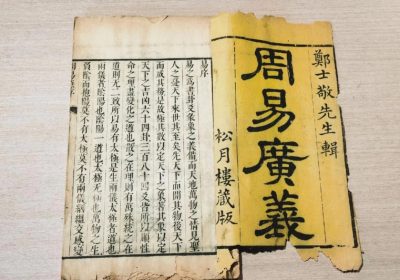 鄭士敬先生輯
周易廣義
松月樓藏版
易序
易之為書卦爻彖象之義備而天地萬物之情見聖
人之憂天下來世其至矣先天下而開其物後天下
而成其務是故極其數以定天下之象著其象以定
天下之吉凶六十四卦三百八十四爻皆所以順性
命之理盡變化之道也散之在理則有萬殊統之在
道則无二致所以易有太極是生兩儀太極者道也
兩儀者陰陽也陰陽一道也太極无極也萬物之生
負陰而抱陽莫不有太極莫不有兩儀絪縕交感變